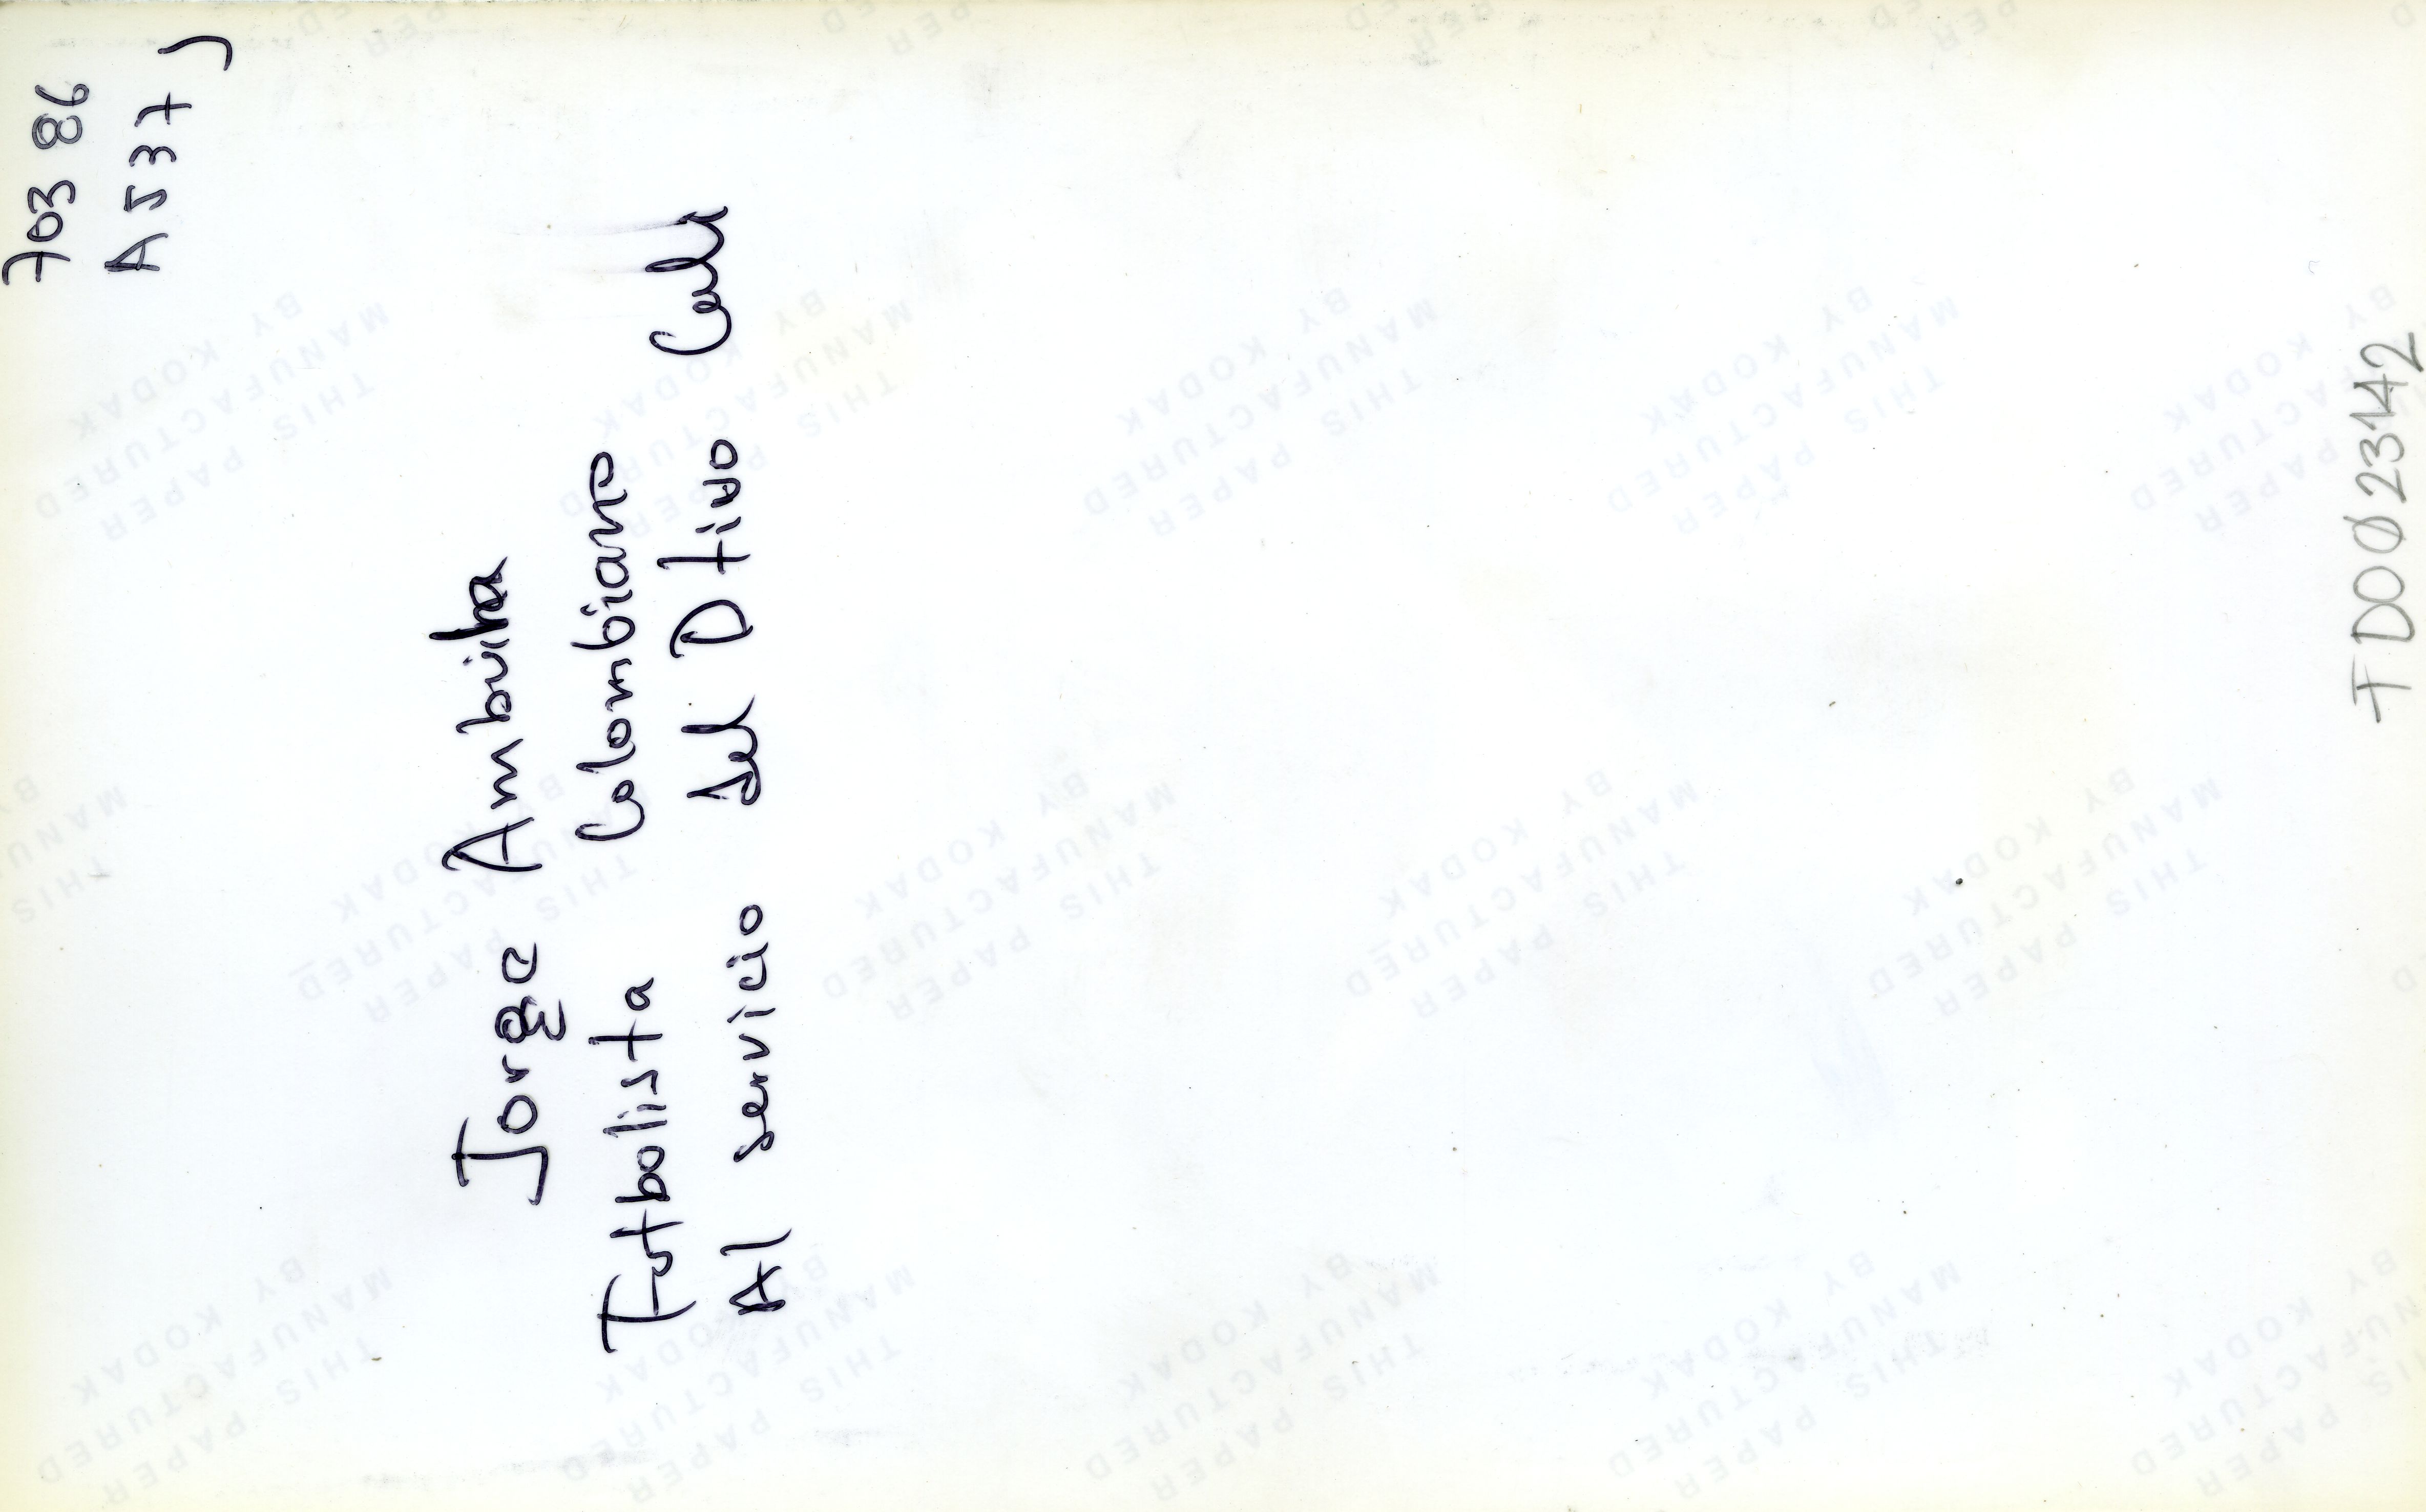 703 86
A 537 J
Jorge Ambuila
Futbolista Colombiano
Al servicio del D tivo Cali
FD0Ø23142
THIS PAPER
MANUFACTURED
BY KODAK